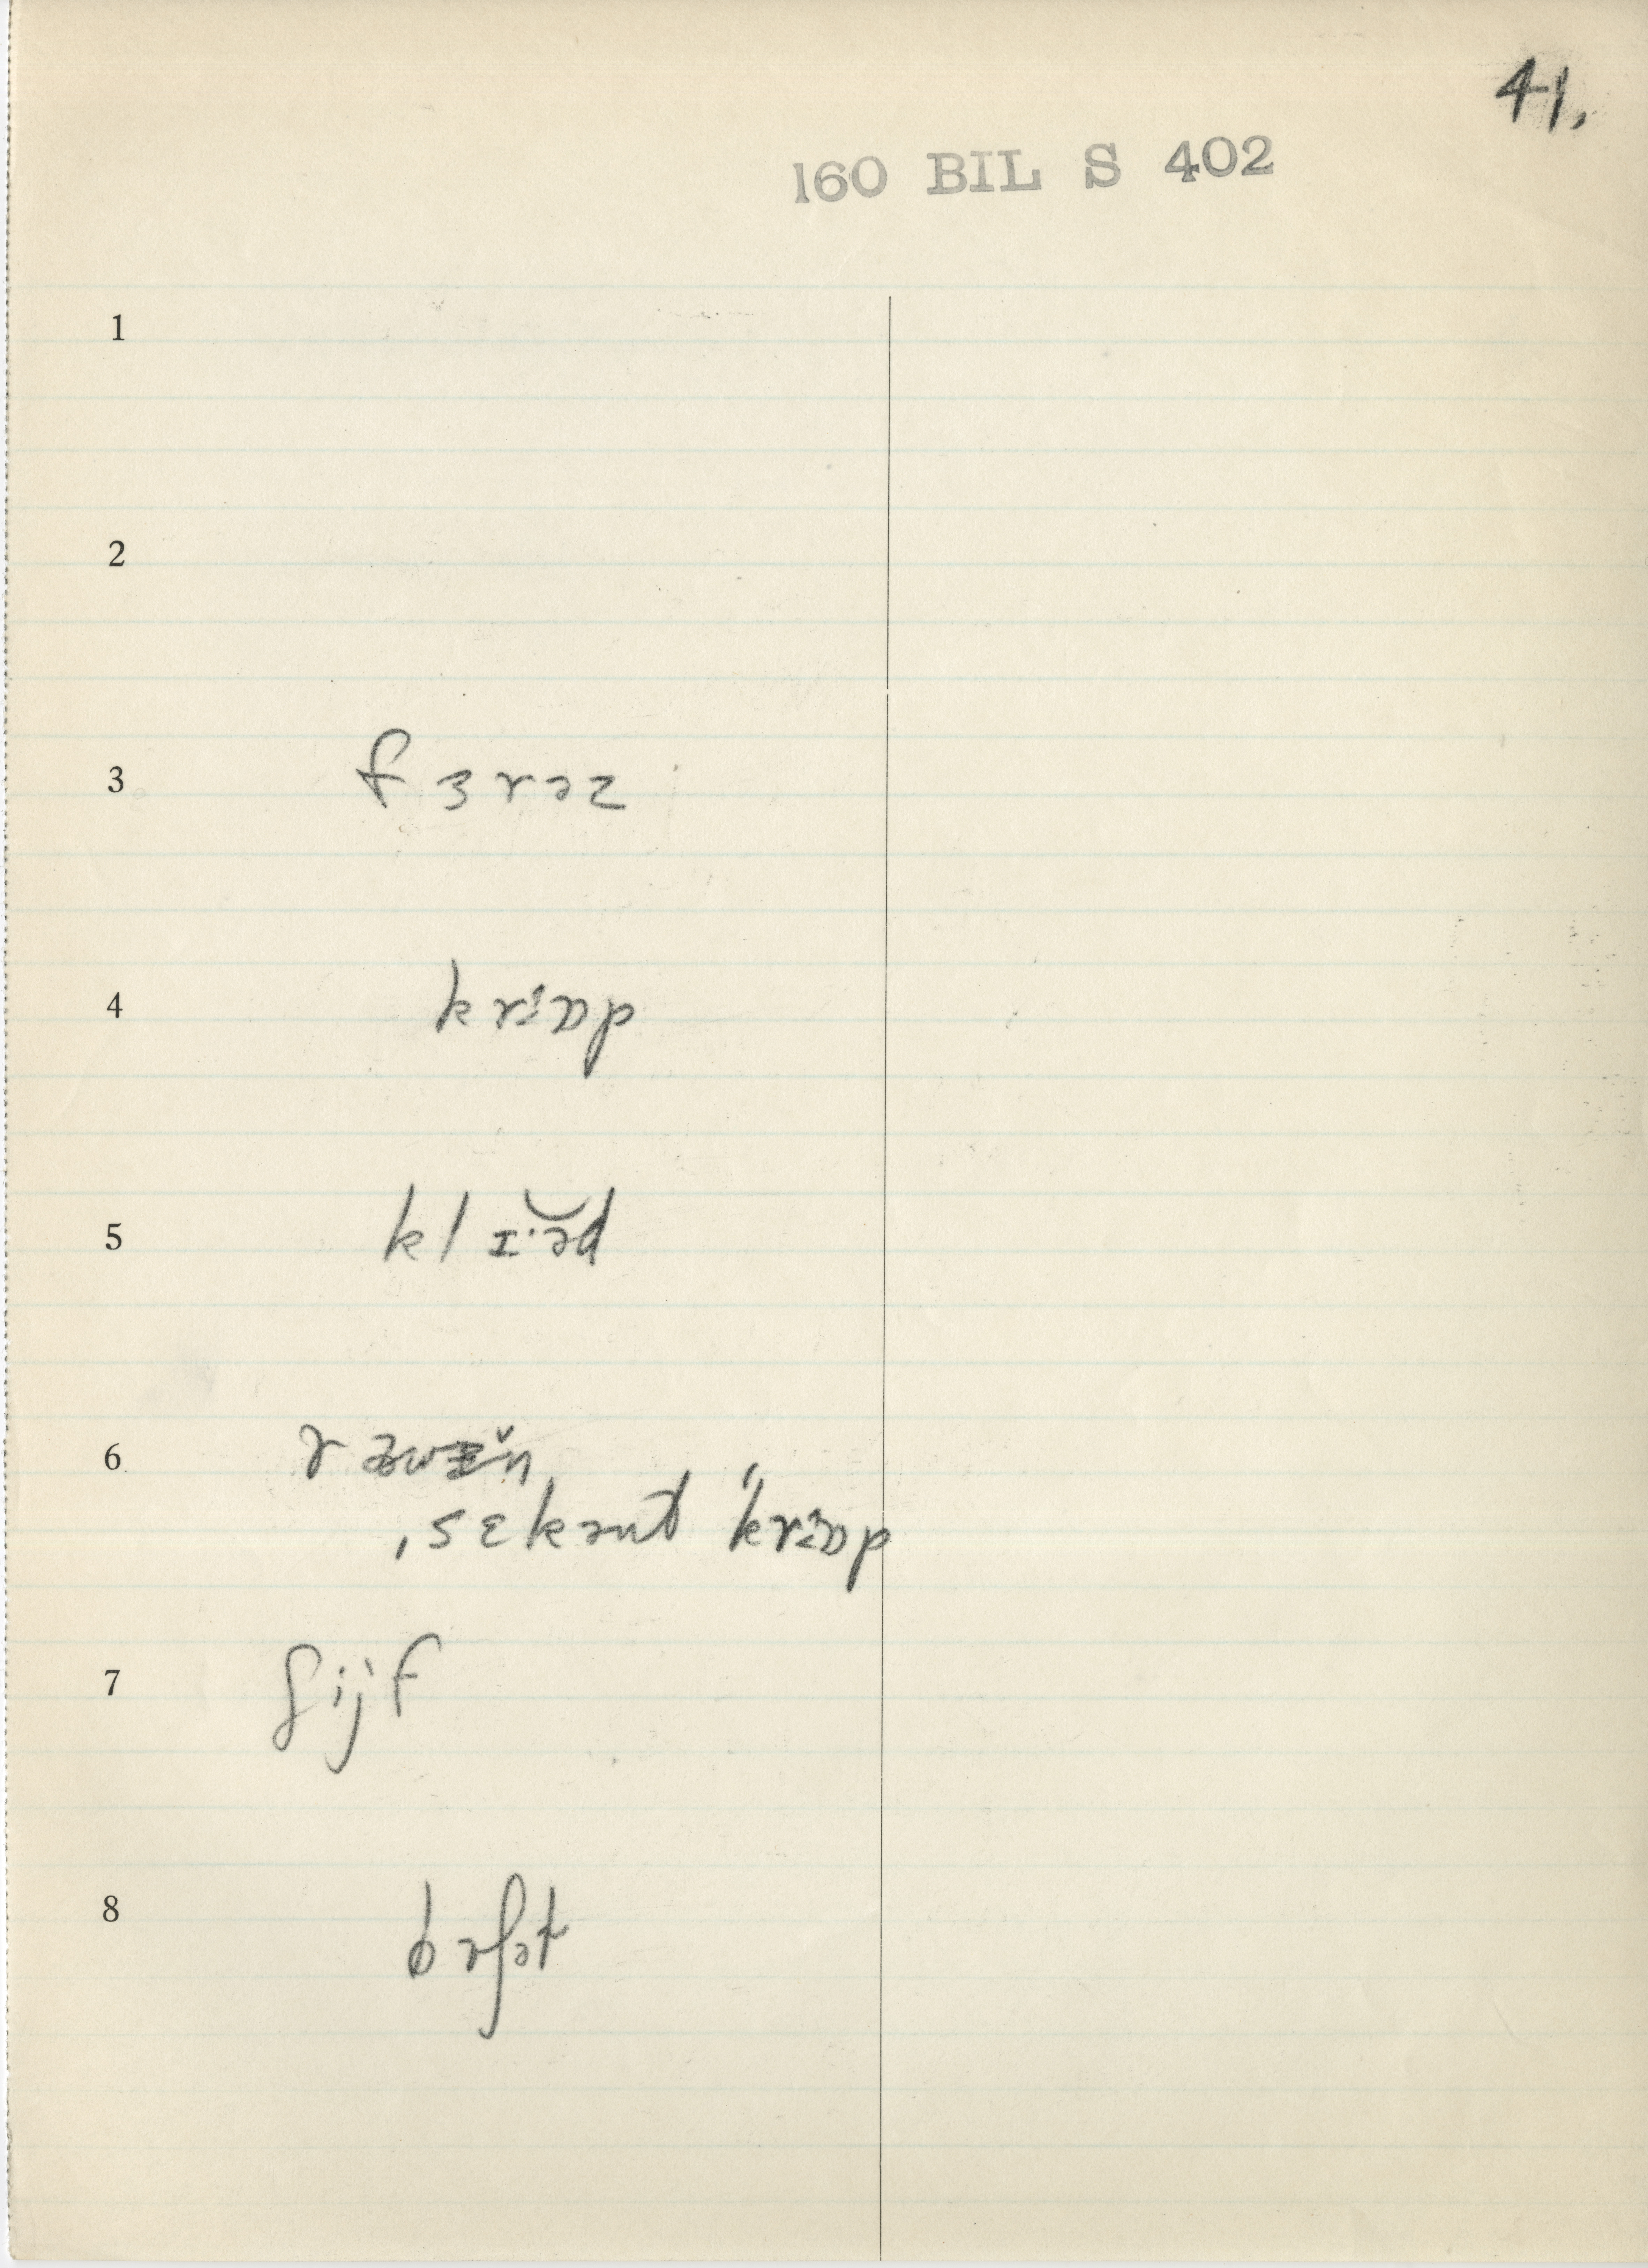 41.
160 BIL S 402
1
2
3 fɜrəz
4 krɒp
5 klɪ·əd
6
ˌsɛkənt ˈkrɒp
7 ʃijf
8 bʊʃət